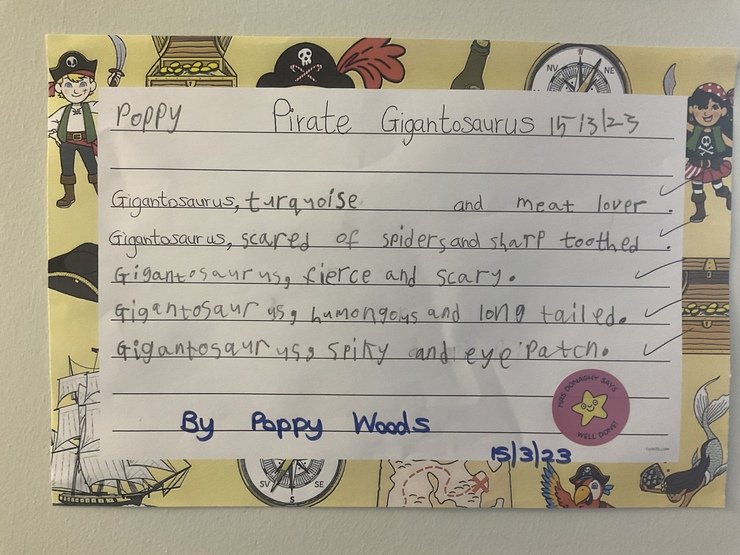 NV
NE
Poppy Pirate Gigantosaurus 15/3/23
Gigantosaurus, turquoise and meat lover.
Gigantosaurus, scared of spiders and sharp toothed.
Gigantosaurus, fierce and scary.
Gigantosaurus, humongous and long tailed.
Gigantosaurus, spiky and eye patch.
MRS DONAGHY SAYS
WELL DONE!
By Poppy Woods
15/3/23
SV
S
SE